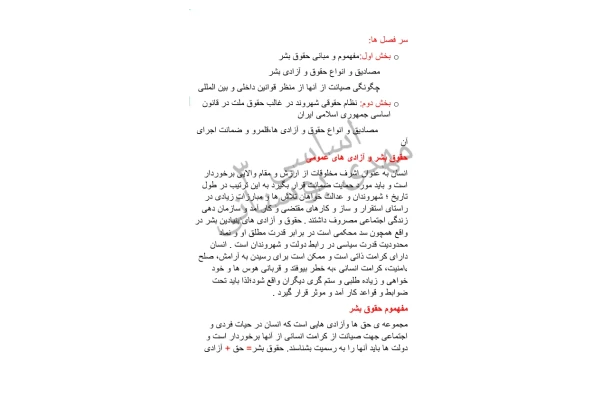 سر فصل ها:
○ بخش اول:مفهموم و مبانی حقوق بشر
مصادیق و انواع حقوق و آزادی بشر
چگونگی صیانت از آنها از منظر قوانین داخلی و بین المللی
○ بخش دوم: نظام حقوقی شهروند در غالب حقوق ملت در قانون
اساسی جمهوری اسلامی ایران
مصادیق و انواع حقوق و آزادی ها،قلمرو و ضمانت اجرای
آن
حقوق بشر و آزادی های عمومی
انسان به عنوان اشرف مخلوقات از ارزش و مقام والایی برخوردار
است و باید مورد حمایت ضمانت قرار بگیرد به این ترتیب در طول
تاریخ ؛ شهروندان و عدالت خواهان تلاش ها و مبارزات زیادی در
راستای استقرار و ساز و کارهای مقتضی و کار آمد و سازمان دهی
زندگی اجتماعی مصروف داشتند . حقوق و آزادی های بنیادین بشر در
واقع همچون سد محکمی است در برابر قدرت مطلق او و نماد
محدودیت قدرت سیاسی در رابط دولت و شهروندان است . انسان
دارای کرامت ذاتی است و ممکن است برای رسیدن به آرامش، صلح
،امنیت، کرامت انسانی ،به خطر بیوفتد و قربانی هوس ها و خود
خواهی و زیاده طلبی و ستم گری دیگران واقع شود؛لذا باید تحت
ضوابط و قواعد کار آمد و موثر قرار گیرد .
مفهموم حقوق بشر
مجموعه ی حق ها وآزادی هایی است که انسان در حیات فردی و
اجتماعی جهت صیانت از کرامت انسانی از آنها برخوردار است و
دولت ها باید آنها را به رسمیت بشناسند. حقوق بشر= حق + آزادی